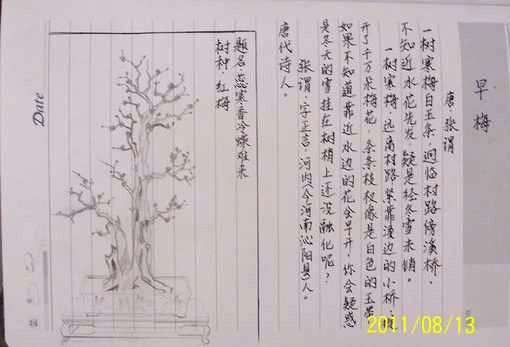 早梅
唐 张谓
一树寒梅白玉条，迥临村路傍溪桥，
不知近水花先发，疑是经冬雪未消。
一树寒梅，远离村路紧靠溪边的小桥，
开了千万朵梅花，条条枝杈像是白色的玉条
如果不知道靠近水边的花会早开，你会疑惑
是冬天的雪挂在树梢上还没融化呢？
张谓，字正言，河内（今河南沁阳县）人。
唐代诗人。
题名：蕊寒香冷蝶难来
树种：红梅
Date
2011/08/13